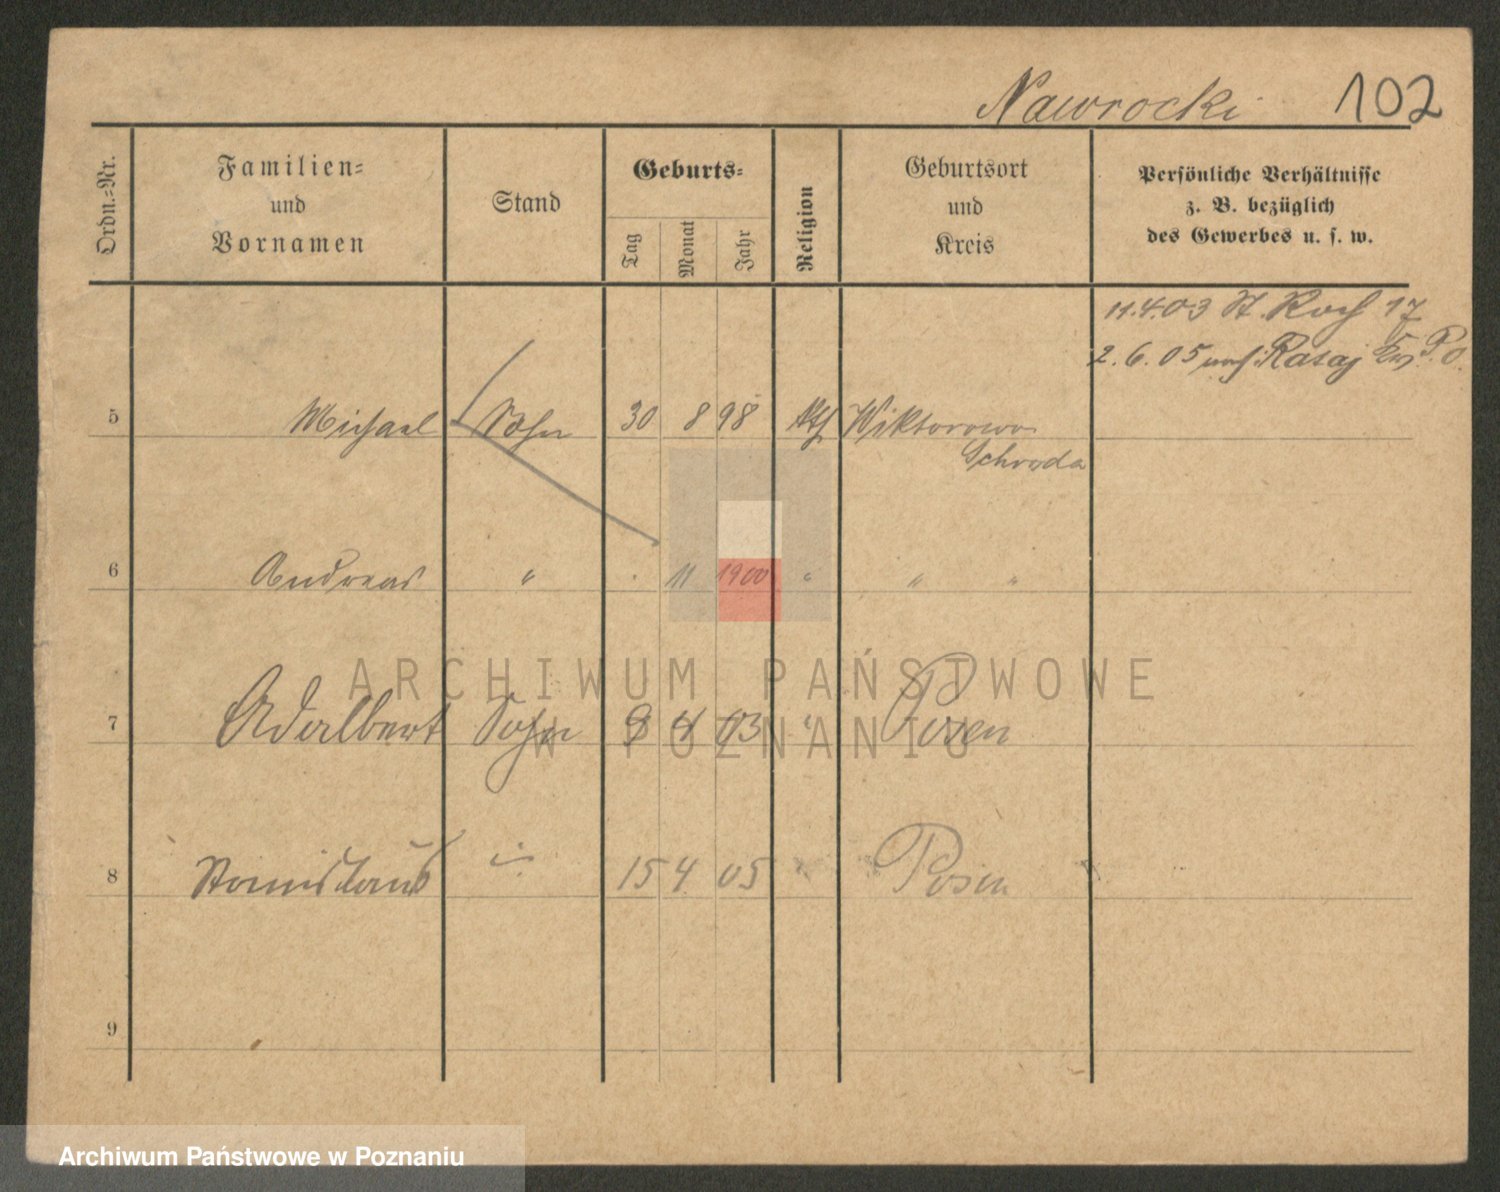 Nawrocki 102
Ordn.-Nr.
Familien-
und
Vornamen
Stand
Geburts-
Tag
Monat
Jahr
Religion
Geburtsort
und
Kreis
Persönliche Verhältnisse
z. B. bezüglich
des Gewerbes u. s. w.
11.4.03 St. Roch 17
2.6.05 nach Rataj P.O.
5 Michael Sohn 30 8 98 kth Wiktorowo
Schroda
6 Andreas " . 11 1900 " " "
ARCHIWUM PAŃSTWOWE
7 Adalbert Sohn 9 4 03 " Posen
W POZNANIU
8 Stanislaus 15 4. 05 " Posen
9
Archiwum Państwowe w Poznaniu